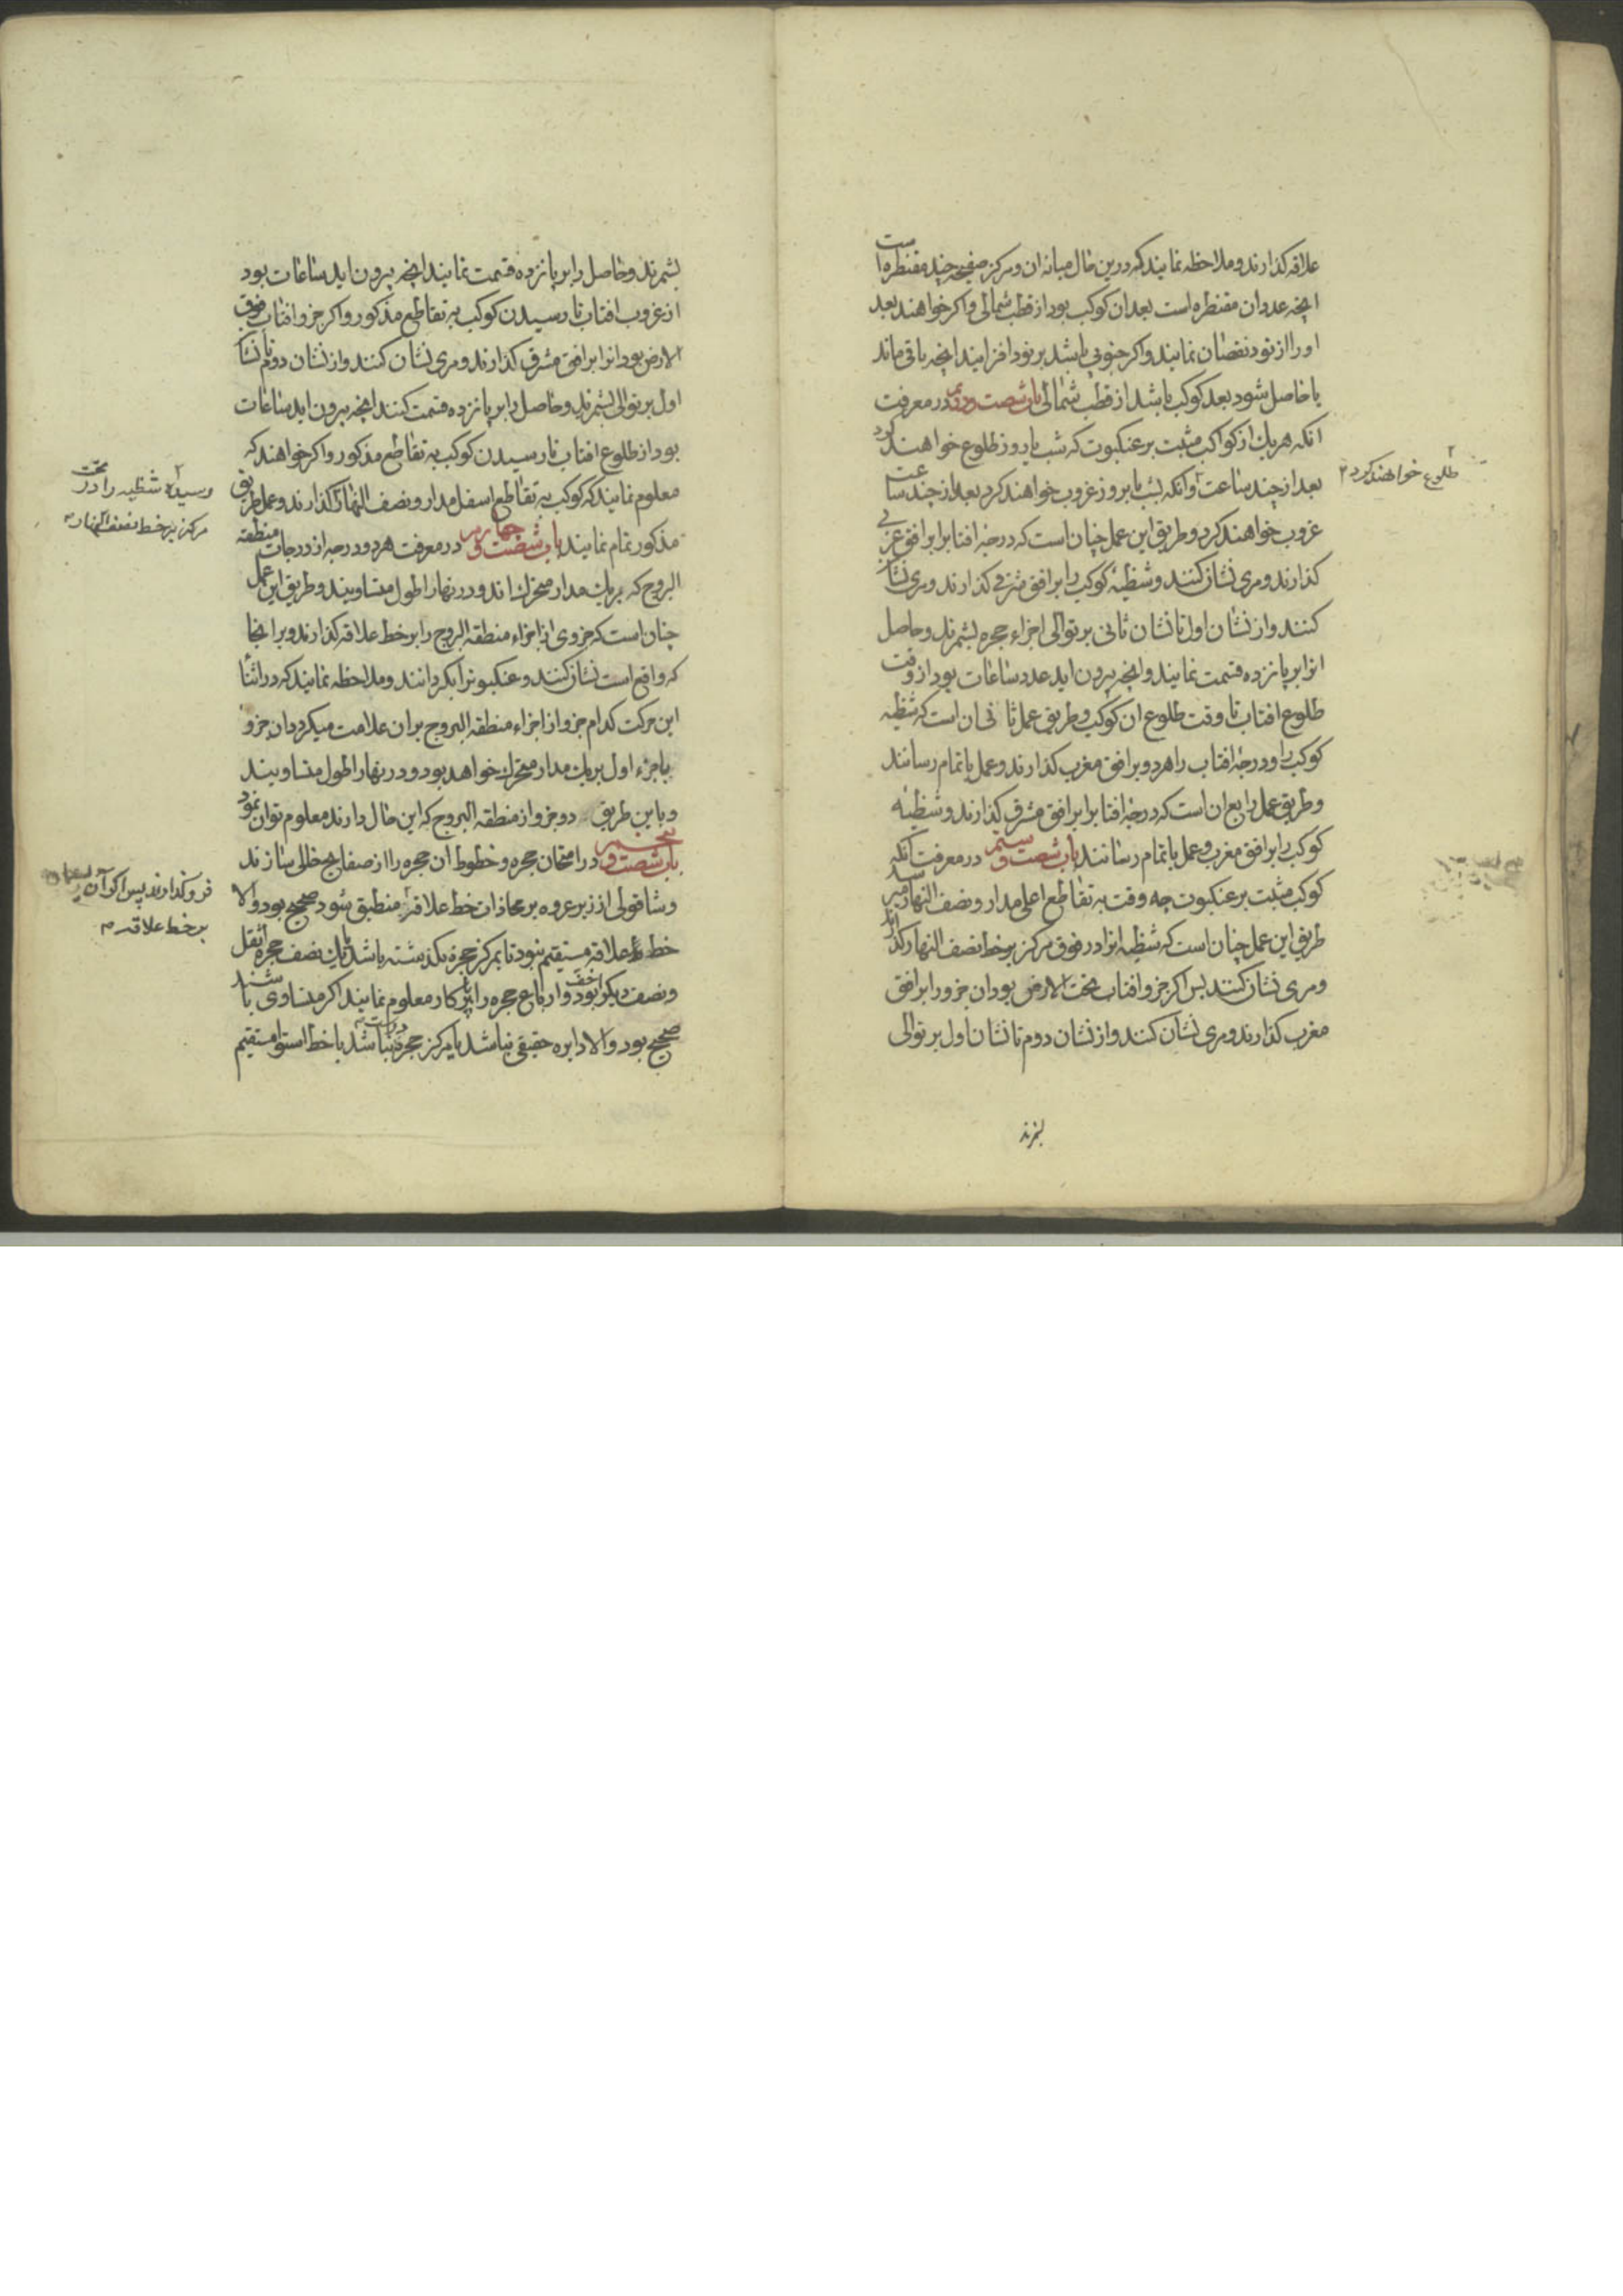 علاقه کذارند و ملاحظه نمایند که درین حال میانه ان و مرکز صفیحه چند مقنطره است
انچه عدد ان مقنطره است بعد ان کوکب بود از قطب شمالی و اکر خواهند بعد
او را از نود نقصان نمایند و اکر جنوبی باشد بر نود افزایند انچه باقی ماند
یا حاصل شود بعد کوکب باشد از قطب شمالی باب شصت و دویم در معرفت
انکه هر یك از کواکب مثبت بر عنکبوت که شب یا روز طلوع خواهند کرد
بعد از چند ساعت و انکه بشب یا بروز غروب خواهند کرد بعد از چند ساعت
طلوع خواهند کرد
غروب خواهند کرد و طریق این عمل چنان است که درجه افتاب را بر افق غربی
کذارند و مری نشان کنند و شظیهٔ کوکب را بر افق شرقی کذارند و مری نشان
کنند و از نشان اول تا نشان ثانی بر توالی اجزاء حجره بشمرند و حاصل
انرا بر پانزده قسمت نمایند و انچه بیرون اید عدد ساعات بود از وقت
طلوع افتاب تا وقت طلوع ان کوکب و طریق عمل ثانی ان است که شظیه
کوکب را و درجهٔ افتاب را هر دو بر افق مغرب کذارند و عمل باتمام رسانند
و طریق عمل رابع ان است که درجهٔ افتاب را بر افق مشرق کذارند و شظیهٔ
کوکب را بر افق مغرب و عمل باتمام رسانند باب شصت و سیم در معرفت انکه
کوکب مثبت بر عنکبوت چه وقت به تقاطع اعلی مدار و نصف النهار میرسد
طریق این عمل چنان است که شظیه انرا در فوق مرکز بر خط نصف النهار کذارند
و مری نشان کنند پس اکر جزو افتاب تحت الارض بود ان جزو را بر افق
مغرب کذارند و مری نشان کنند و از نشان دوم تا نشان اول بر توالی
بشمرند
بشمرند و حاصل را بر پانزده قسمت نمایند انچه بیرون اید ساعات بود
از غروب افتاب تا رسیدن کوکب به تقاطع مذکور و اکر جزو افتاب فوق
الارض بود انرا بر افق مشرق کذارند و مری نشان کنند و از نشان دوم تا نشان
اول بر توالی بشمرند و حاصل را بر پانزده قسمت کنند انچه بیرون اید ساعات
بود از طلوع افتاب تا رسیدن کوکب به تقاطع مذکور و اکر خواهند که
معلوم نمایند که کوکب به تقاطع اسفل مدار و نصف النهار کذارند و عمل بطریق
رسیده شظیه را در تحت
مرکز بر خط نصف النهار
مذکور تمام نمایند باب شصت و چهارم در معرفت هر دو درجه از درجات منطقه
البروج که بر یك مدار متحرك اند و در نهار اطول متساویند و طریق این عمل
چنان است که جزوی از اجزاء منطقه البروج را بر خط علاقه کذارند و بر انجا
که واقع است نشان کنند و عنکبوت را بکردانند و ملاحظه نمایند که در اثنا
این حرکت کدام جزو از اجزاء منطقه البروج بر ان علامت میکردد ان جزو
با جزء اول بر یك مدار متحرك خواهد بود و در نهار اطول متساویند
و باین طریق دو جزو از منطقه البروج که این حال دارند معلوم توان نمود
باب شصت و پنجم در امتحان حجره و خطوط ان حجره را از صفایح خالی سازند
و شاقولی از زبر عروه بر محاذات خط علاقه منطبق شود صحیح بود و الا
فروکذارند پس اکر آن
بر خط علاقه
خط علاقه مستقیم نبود تا بمرکز حجره نکذشته باشد یا یك نصف حجره اثقل
و نصف دیکر اخف بود و ارباع حجره را بپرکار معلوم نمایند اکر متساوی باشند
صحیح بود و الا دایره حقیقی نباشد یا مرکز حجره درست نباشد یا خط استوا مستقیم